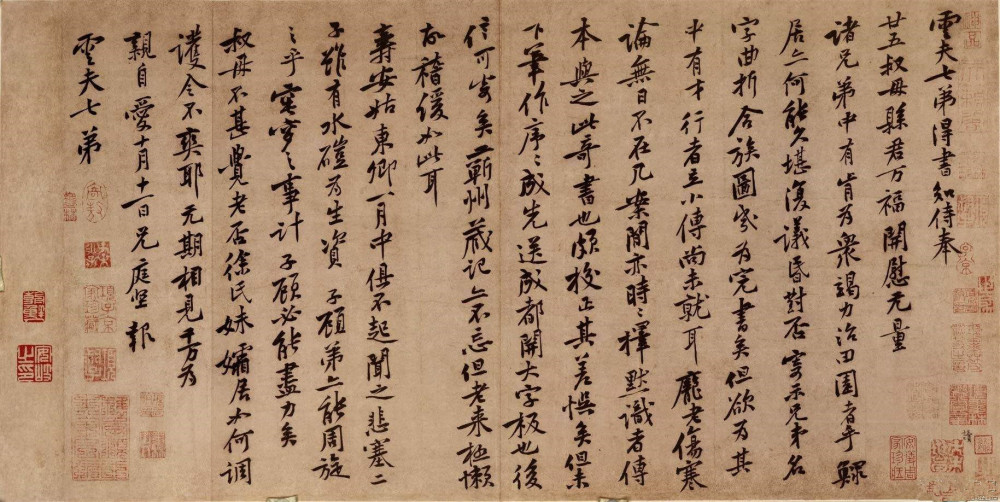 雲夫七弟得書知侍奉
廿五叔母縣君万福開慰无量
諸兄弟中有肯为衆竭力治田園者乎鰥
居亦何能久堪復議昏對否寄示兄弟名
字曲折合族圖为完書矣但欲为其
中有才行者立小傳尚未就耳龐老傷寒
論無日不在几案間亦時〻擇默識者傳
本與之此奇書也頗校正其差悮矣但未
下筆作序〻成先送成都開大字板也後
信可寄矣蘄州藏記亦不忘但老来極懶
故稽緩如此耳
壽安姑東卿一月中俱不起聞之悲塞二
子雖有水磑为生資子顧弟亦能周旋
之乎窀穸之事計子顧必能盡力矣
叔母不甚覺老否徐氏妹孀居如何調
護令不爽耶无期相見千万为
親自愛十月十一日兄庭坚報
雲夫七弟